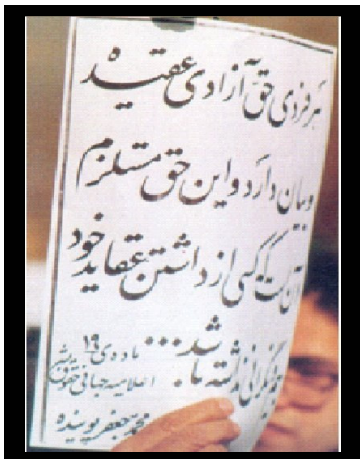 هر فردی حق آزادی عقیده
و بیان دارد و این حق مستلزم
آن است که کسی از داشتن عقاید خود
نگرانی نداشته باشد...
ماده‌ی ۱۹
اعلامیه جهانی حقوق بشر
محمد جعفر پوینده